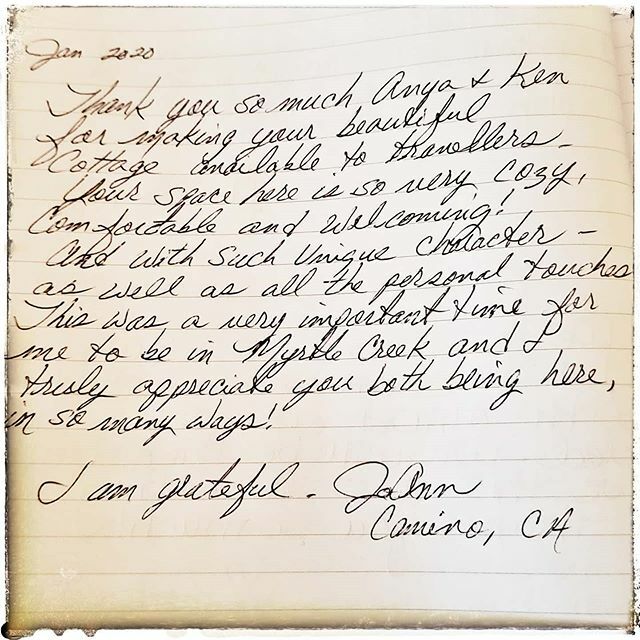 Jan 2020
Thank you so much Anya & Ken
for making your beautiful
Cottage available to travellers -
Your space here is so very cozy,
Comfortable and welcoming!
And with such unique character -
as well as all the personal touches
This was a very important time for
me to be in Myrtle Creek and I
truly appreciate you both being here,
in so many ways!
I am grateful - JoAnn
Camino, CA